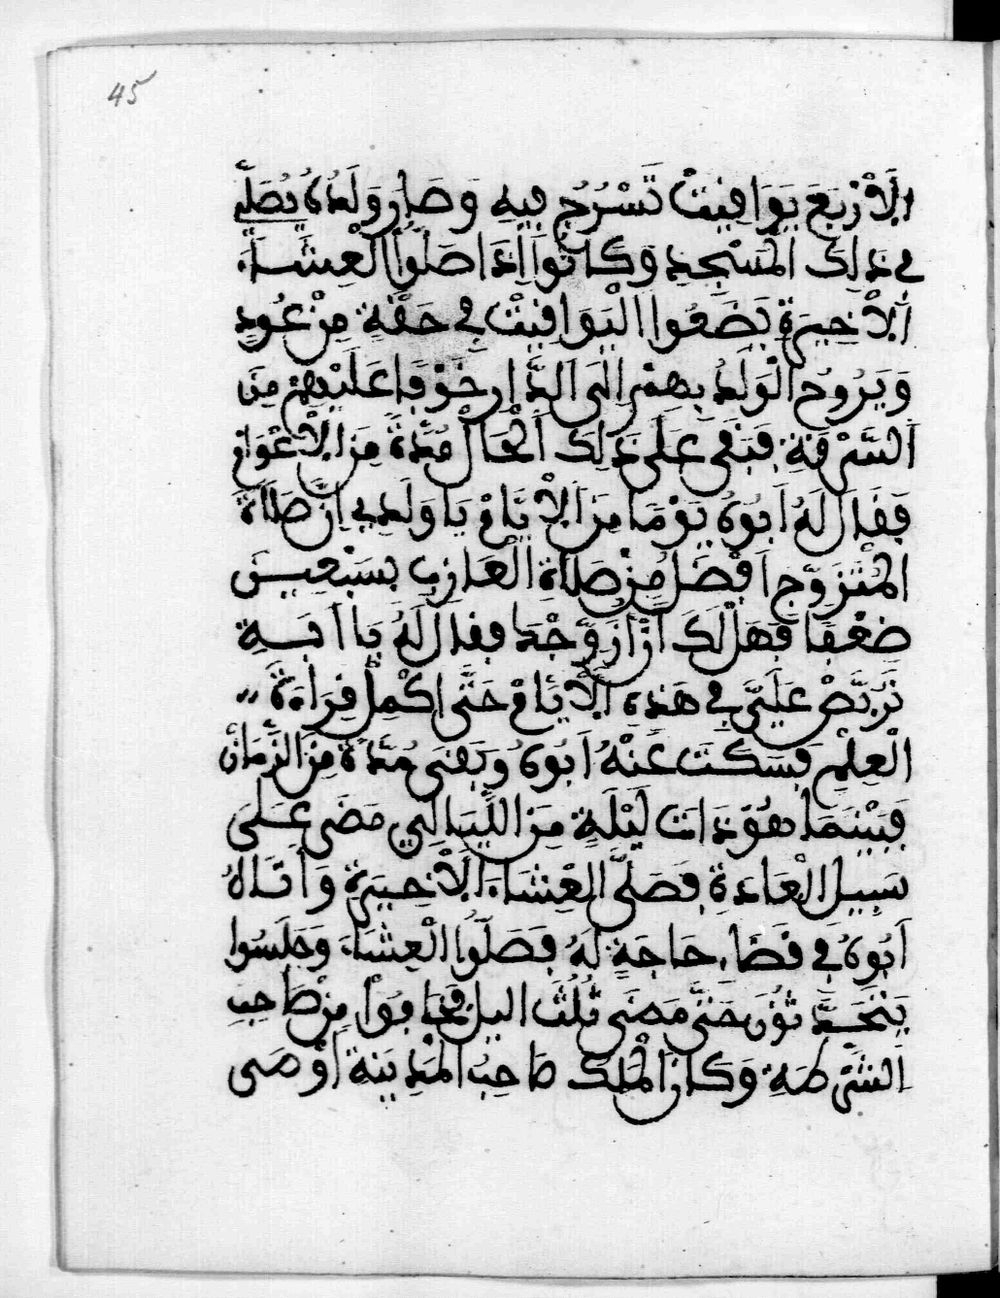 45
الَارْبَعَ يَوَافِيتْ تَسْرُجُ فِيهِ وَصَارَ وَلَدُهُ يُصَلِّي
فِي ذَلِكَ الْمَسْجِدِ وَكَانُوا اِذَا صَلُّوا الْعِشَاءَ
الْاَخِيرَةِ يَضَعُوا الْيَوَافِيتْ فِي حَقَّةٍ مِنْ عُودٍ
وَيَرُوحُ الْوَلَدُ بِهِمْ اِلَى الدَّارِ خَوْفًا عَلَيْهِمْ مِنَ
السَّرْقَةِ فَبَقَى عَلَى ذَلِكَ الْحَالْ مُدَّةً مِنَ الْاَعْوَامِ
فَقَالَ لَهُ اَبُوهُ يَوْمًا مِنَ الْاَيَّامْ يَا وَلَدِي اِنَّ صَلَاةَ
الْمُتَزَوِّجِ اَفْضَلُ مِنْ صَلَاةِ الْعَازِبِ بِسَبْعِينَ
ضَعْفًا فَهَلْ لَكَ اَنْ اَزَوِّجْكَ فَقَالَ لَهُ يَا اَبَةِ
تَرَبَّصْ عَلَيَّ فِي هَذِهِ الْاَيَّامْ حَتَّى اَكْمِلُ قِرَاءَةَ
الْعِلْمِ فَسَكَتَ عَنْهُ اَبُوهُ وَبَقَى مُدَّةً مِنَ الزَّمَانْ
فَبَيْنَمَا هُوَ ذَاتَ لَيْلَةٍ مِنَ اللَّيَالِي مَضَى عَلَى
سَبِيلِ الْعَادَةِ فَصَلَّى الْعِشَاءَ الْاَخِيرَةِ وَاَتَاهُ
اَبُوهُ فِي قَضَاءِ حَاجَةٍ لَهُ فَصَلُّوا الْعِشَاءَ وَجَلَسُوا
يَتَحَدَّثُونَ حَتَّى مَضَى ثُلُثُ الَّيلِ فَخَافُوا مِنْ صَاحِبِ
الشَّرْطَةِ وَكَانَ الْمَلِكُ صَاحِبُ الْمَدِينَةِ اَوْصَى